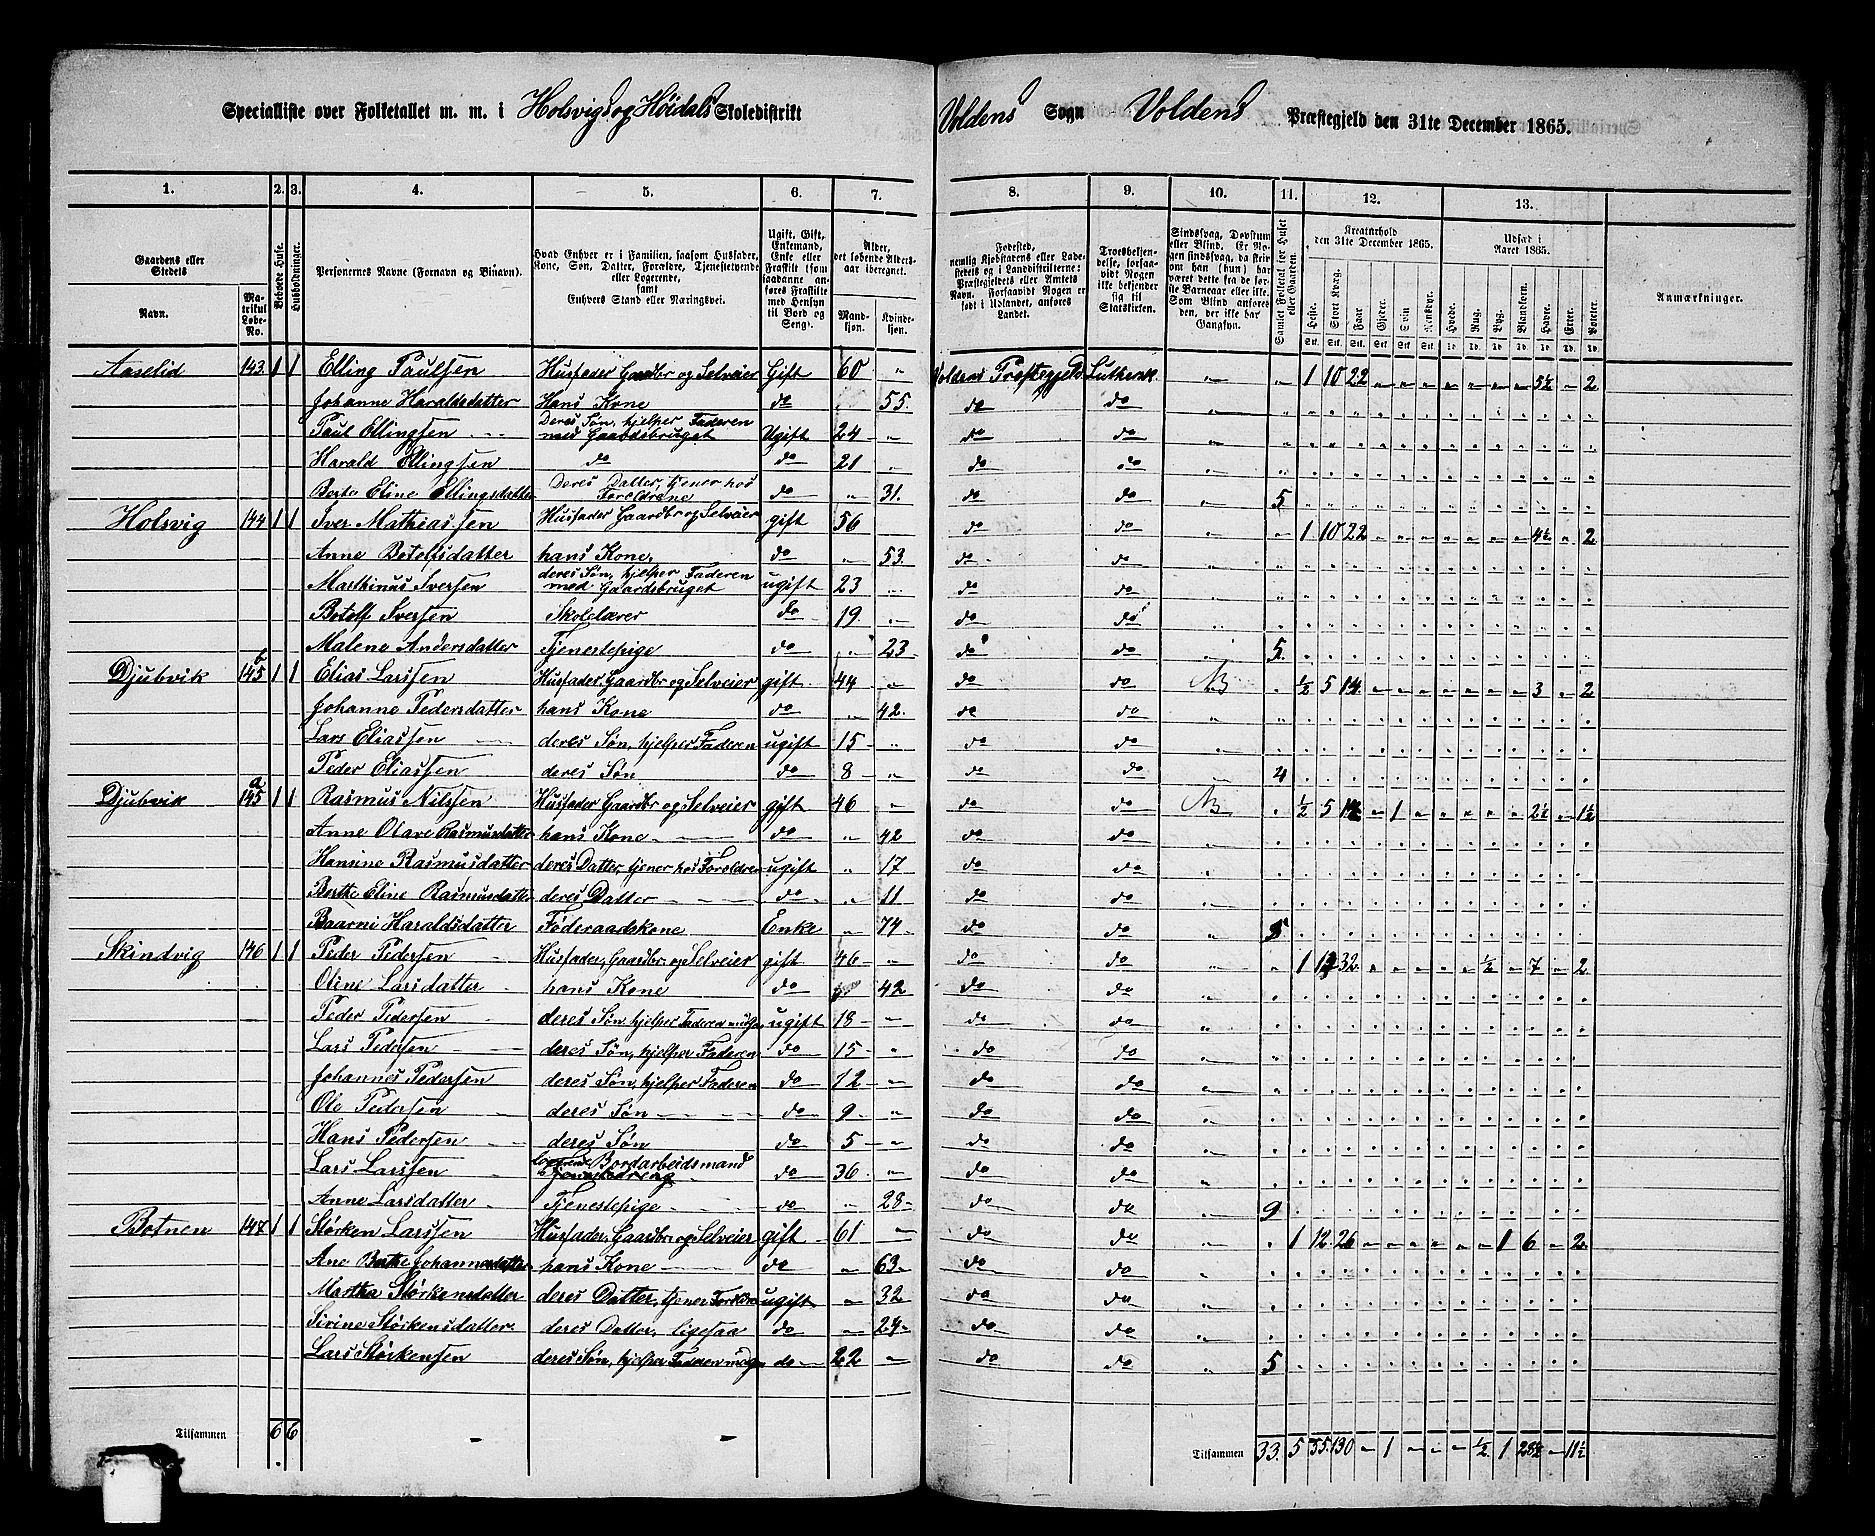 Specialliste over Folketallet m. m. i Holsvigs og Höidals Skoledistrikt Voldens Sogn Voldens Præstegjeld den 31te December 1865.
1. 2. 3. 4. 5. 6. 7. 8. 9. 10. 11. 12. 13.
Gaardens eller Stedets Navn. Matrikul Løbe-No. Beboede Huse. Husholdninger. Personernes Navne (Fornavn og Binavn). Hvad Enhver er i Familien, saasom Husfader, Kone, Søn, Datter, Forældre, Tjenestetyende eller Logerende, samt Enhvers Stand eller Næringsvei. Ugift, Gift, Enkemand, Enke eller Fraskilt (som saadanne anføres Fraskilte med Hensyn til Bord og Seng). Alder, det løbende Alders-aar iberegnet. Mandkjøn. Kvindekjøn. Fødested, nemlig Kjøbstadens eller Ladestedets og i Landdistrikterne: Præstegjeldets eller Amtets Navn. Forsaavidt Nogen er født i Udlandet, anføres Landet. Troesbekjendelse, forsaavidt Nogen ikke bekjender sig til Statskirken. Sindssvag, Døvstum eller Blind. Er Nogen sindssvag, anføres, om han (hun) har været dette fra de første Barneaar eller ikke. Som Blind anføres den, der ikke har Gangsyn. Samlet Folketal for Huset eller Gaarden. Kreaturhold den 31te December 1865. Heste. Stort Kvæg. Faar. Gjeder. Svin. Rensdyr. Udsæd i Aaret 1865. Hvede. Rug. Byg. Blandkorn. Havre. Erter. Poteter. Anmærkninger.
Aaselid 143 1 1 Elling Paulsen Husfader Gaardbr og Selveier Gift 60 „ Voldens Prestegjeld Lutherske „ „ 1 10 22 „ „ „ „ „ „ „ 5½ „ 2
Johanne Haraldsdatter Hans Kone do 55. do do
Paul Ellingsen Deres Søn, hjelper Faderen med Gaardsbruget Ugift 24 „ do do
Harald Ellingsen do do 21 „ do do
Berte Eline Ellingsdatter Deres Datter, tjener hos Foroldrene do „ 31. do do „ 5
Holsvig 144 1 1 Iver Mathiassen Husfader Gaardbr og Selveier gift 56 „ do do „ „ 1 10 22 „ „ „ „ „ „ „ 4½ „ 2
Anne Botolfsdatter hans Kone, do „ 53. do do
Mathinus Iversen deres Søn, hjelper Faderen med Gaardsbruget ugift 23 „ do do
Botolf Iversen Skolelærer do 19. „ do do
Malene Andersdatter Tjenestepige do „ 23 do do „ 5
Djubvik 145 b 1 1 Elias Larssen Husfader Gaardbr og Selveier gift 44 „ do do NB „ ½ 5 14 „ „ „ „ „ „ „ 3 „ 2
Johanne Pedersdatter hans Kone do „ 42. do do
Lars Eliassen deres Søn, hjelper Faderen ugift 15 „ do do
Peder Eliassen deres Søn do 8 „ do do „ 4
Djubvik 145 a 1 1 Rasmus Nilssen Husfader Gaardbr og Selveier gift 46 „ do do NB „ ½ 5 14 „ 1 „ „ „ „ „ 2½ „ 1½
Anne Olave Rasmusdatter hans Kone do „ 42 do do
Hansine Rasmusdatter deres Datter, tjener hos Foroldren ugift „ 17 do do
Berthe Eline Rasmusdatter deres Datter do „ 11 do do
Baarni Haraldsdatter Føderaadskone Enke „ 74 do do „ 5
Skindvig 146 1 1 Peder Pedersen Husfader, Gaardbr. og Selveier gift 46 „ do do „ „ 1 13 32 „ „ „ „ „ ½ „ 7 „ 2
Oline Larsdatter hans Kone do 42 do do
Peder Pedersen deres Søn hjelper Faderen med Ga ugift 18 „ do do
Lars Pedersen deres Søn, hjelper Faderen do 15 „ do do
Johannes Pedersen deres Søn, hjelper Faderen do 12 „ do do
Ole Pedersen deres Søn do 9 „ do do
Hans Pedersen deres Søn do 5 „ do do
Lars Larssen Logerende Bordarbeidsmand do 36 „ do do
Anne Larsdatter Tjenestepige do „ 28 do do „ 9
Botnen 147 1 1 Størker Larssen Husfader, Gaardbr. og Selveier gift 61 „ do do „ „ 1 12 26 „ „ „ „ „ „ 1 6 „ 2
Ane Berthe Johannesdatter hans Kone do „ 63 do do
Martha Størkersdatter deres Datter, tjener Foroldre ugift „ 32 do do
Sirine Størkersdatter deres Datter, ligesaa do „ 24 do do
Lars Størkersen deres Søn, hjelper Faderen med G do 22 „ do do „ 5
Tilsammen 6 6 Tilsammen 33 5 55 130 „ 1 „ „ „ ½ 1 28½ „ 11½